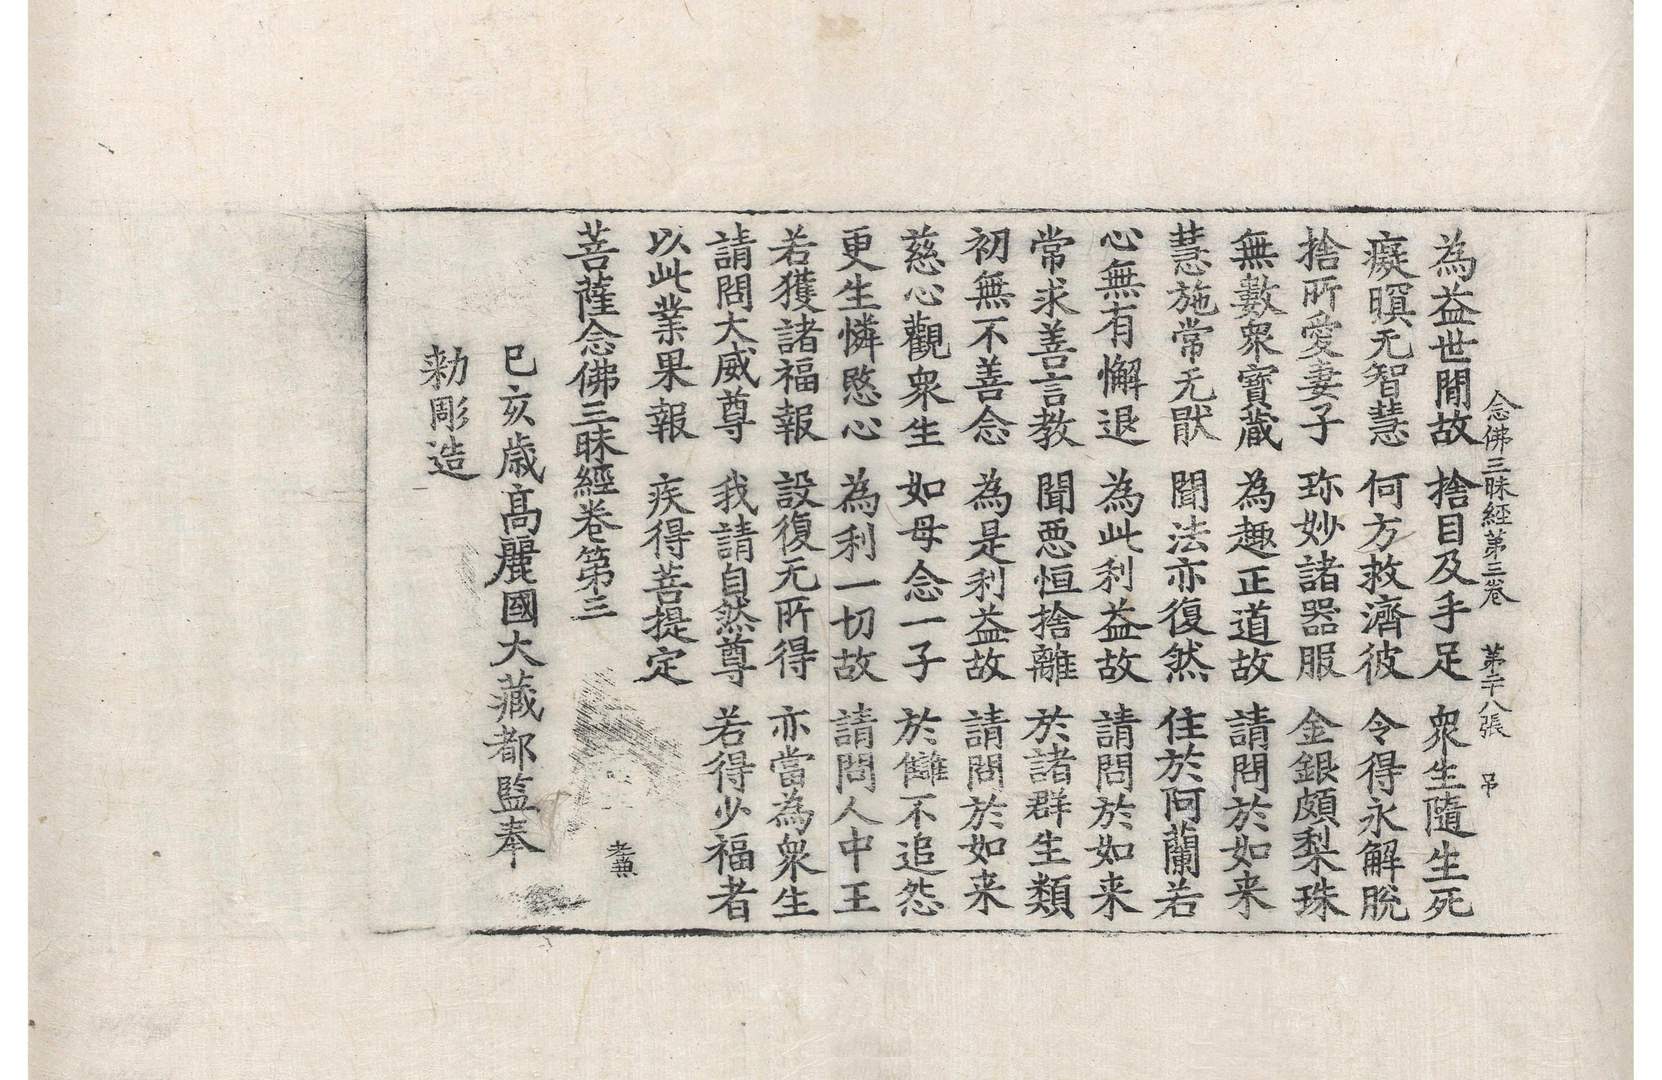 念佛三昧經第三卷 第二十八張 弔
為益世間故 捨目及手足 衆生隨生死
癡瞑无智慧 何方救濟彼 令得永解脫
捨所愛妻子 珎妙諸器服 金銀頗梨珠
無數衆寶藏 為趣正道故 請問於如来
慧施常无猒 聞法亦復然 住於阿蘭若
心無有懈退 為此利益故 請問於如来
常求善言教 聞惡恒捨離 於諸群生類
初無不善念 為是利益故 請問於如来
慈心觀衆生 如母念一子 於讎不追怨
更生憐愍心 為利一切故 請問人中王
若獲諸福報 設復无所得 亦當為衆生
請問大威尊 我請自然尊 若得少福者
以此業果報 疾得菩提定
菩薩念佛三昧經卷第三
老兼
己亥歲高麗國大藏都監奉
勅彫造